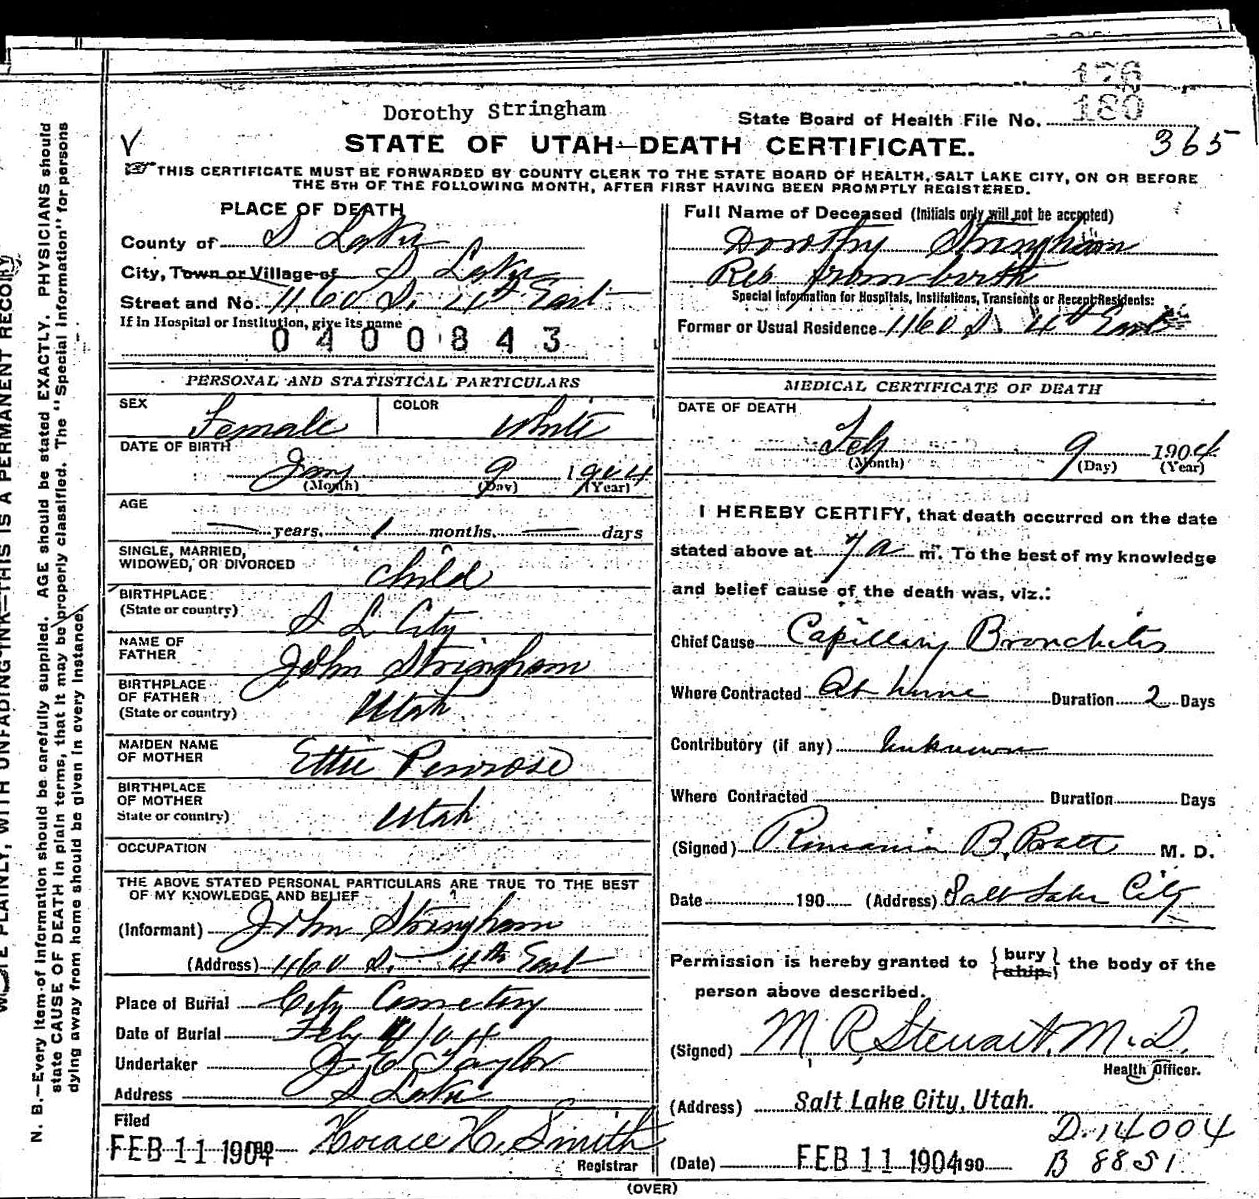 126
180
Dorothy Stringham
State Board of Health File No.
365
STATE OF UTAH—DEATH CERTIFICATE.
THIS CERTIFICATE MUST BE FORWARDED BY COUNTY CLERK TO THE STATE BOARD OF HEALTH, SALT LAKE CITY, ON OR BEFORE
THE 5TH OF THE FOLLOWING MONTH, AFTER FIRST HAVING BEEN PROMPTLY REGISTERED.
PLACE OF DEATH
County of S Lake
City, Town or Village of S Lake
Street and No. 1160 S. 4th East
If in Hospital or Institution, give its name
0400843
Full Name of Deceased (Initials only will not be accepted)
Dorothy Stringham
Res from birth
Special Information for Hospitals, Institutions, Transients or Recent Residents:
Former or Usual Residence 1160 S. 4th East
PERSONAL AND STATISTICAL PARTICULARS
SEX Female COLOR White
DATE OF BIRTH
Jany 9 1904
(Month) (Day) (Year)
AGE
— years, 1 months, — days
SINGLE, MARRIED,
WIDOWED, OR DIVORCED child
BIRTHPLACE
(State or country) S L City
NAME OF
FATHER John Stringham
BIRTHPLACE
OF FATHER
(State or country) Utah
MAIDEN NAME
OF MOTHER Ettie Penrose
BIRTHPLACE
OF MOTHER
State or country) Utah
OCCUPATION
THE ABOVE STATED PERSONAL PARTICULARS ARE TRUE TO THE BEST
OF MY KNOWLEDGE AND BELIEF
(Informant) John Stringham
(Address) 1160 S. 4th East
Place of Burial City Cemetery
Date of Burial Feby
Undertaker Taylor
Address S Lake
Filed
FEB 11 1904 Horace H. Smith
Registrar
MEDICAL CERTIFICATE OF DEATH
DATE OF DEATH
Feb 9 1904
(Month) (Day) (Year)
I HEREBY CERTIFY, that death occurred on the date
stated above at 7 a m. To the best of my knowledge
and belief cause of the death was, viz.:
Chief Cause Capillary Bronchitis
Where Contracted At home Duration 2 Days
Contributory (if any) Unknown
Where Contracted Duration Days
(Signed) Romania B. Pratt M. D.
Date 190 (Address) Salt Lake City
Permission is hereby granted to {bury ship} the body of the
person above described.
(Signed) M. R. Stewart, M.D.
Health Officer.
(Address) Salt Lake City, Utah.
D. 14004
(Date) FEB 11 1904 190
B 8851
(OVER)
WRITE PLAINLY, WITH UNFADING INK—THIS IS A PERMANENT RECORD
N. B.—Every item of information should be carefully supplied. AGE should be stated EXACTLY. PHYSICIANS should
state CAUSE OF DEATH in plain terms, that it may be properly classified. The "Special Information" for persons
dying away from home should be given in every instance.